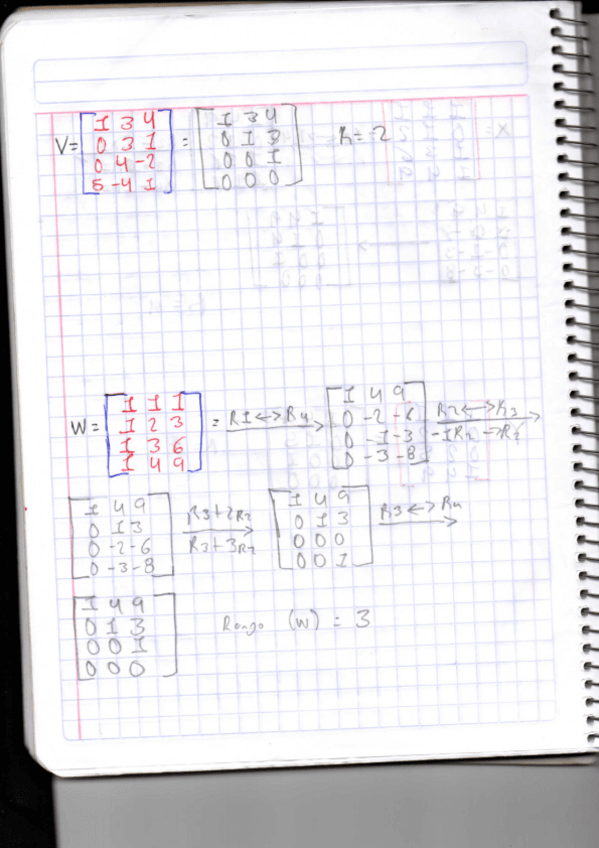 V = [1 3 4; 0 3 1; 0 4 -2; 5 -4 1] = [1 3 4; 0 1 3; 0 0 1; 0 0 0] R = -2
W = [1 1 1; 1 2 3; 1 3 6; 1 4 9] = R1 <-> R4 [1 4 9; 0 -2 -6; 0 -1 -3; 0 -3 -8] R2 <-> R3 -1R2 -> R2
[1 4 9; 0 1 3; 0 -2 -6; 0 -3 -8] R3+2R2 R3+3R2 [1 4 9; 0 1 3; 0 0 0; 0 0 1] R3 <-> R4
[1 4 9; 0 1 3; 0 0 1; 0 0 0] Rango (W) = 3